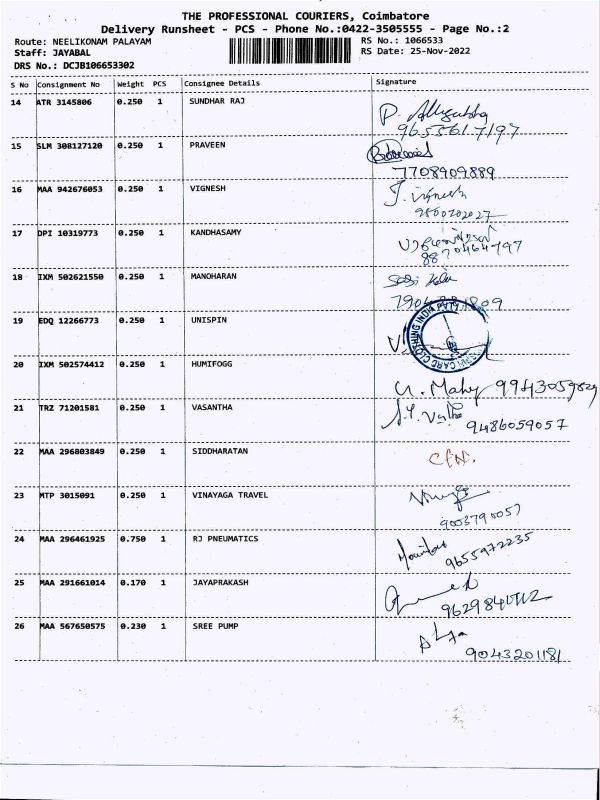 THE PROFESSIONAL COURIERS, Coimbatore
Delivery Runsheet - PCS - Phone No.:0422-3505555 - Page No.:2
Route: NEELIKONAM PALAYAM RS No.: 1066533
Staff: JAYABAL RS Date: 25-Nov-2022
DRS No.: DCJB106653302
S No Consignment No Weight PCS Consignee Details Signature
14 ATR 3145806 0.250 1 SUNDHAR RAJ
9655617197
15 SLM 308127120 0.250 1 PRAVEEN
7708909889
16 MAA 942676053 0.250 1 VIGNESH J. Vignesh
9500202027
17 DPI 10319773 0.250 1 KANDHASAMY
8870464797
18 IXM 502621550 0.250 1 MANOHARAN
19 EDQ 12266773 0.250 1 UNISPIN
CARE CLOTHING INDIA PVT
20 IXM 502574412 0.250 1 HUMIFOGG
9943059829
21 TRZ 71201581 0.250 1 VASANTHA
9486059057
22 MAA 296803849 0.250 1 SIDDHARATAN
23 MTP 3015091 0.250 1 VINAYAGA TRAVEL
9003790057
24 MAA 296461925 0.750 1 RJ PNEUMATICS
9655972235
25 MAA 291661014 0.170 1 JAYAPRAKASH
26 MAA 567650575 0.230 1 SREE PUMP
9043201181